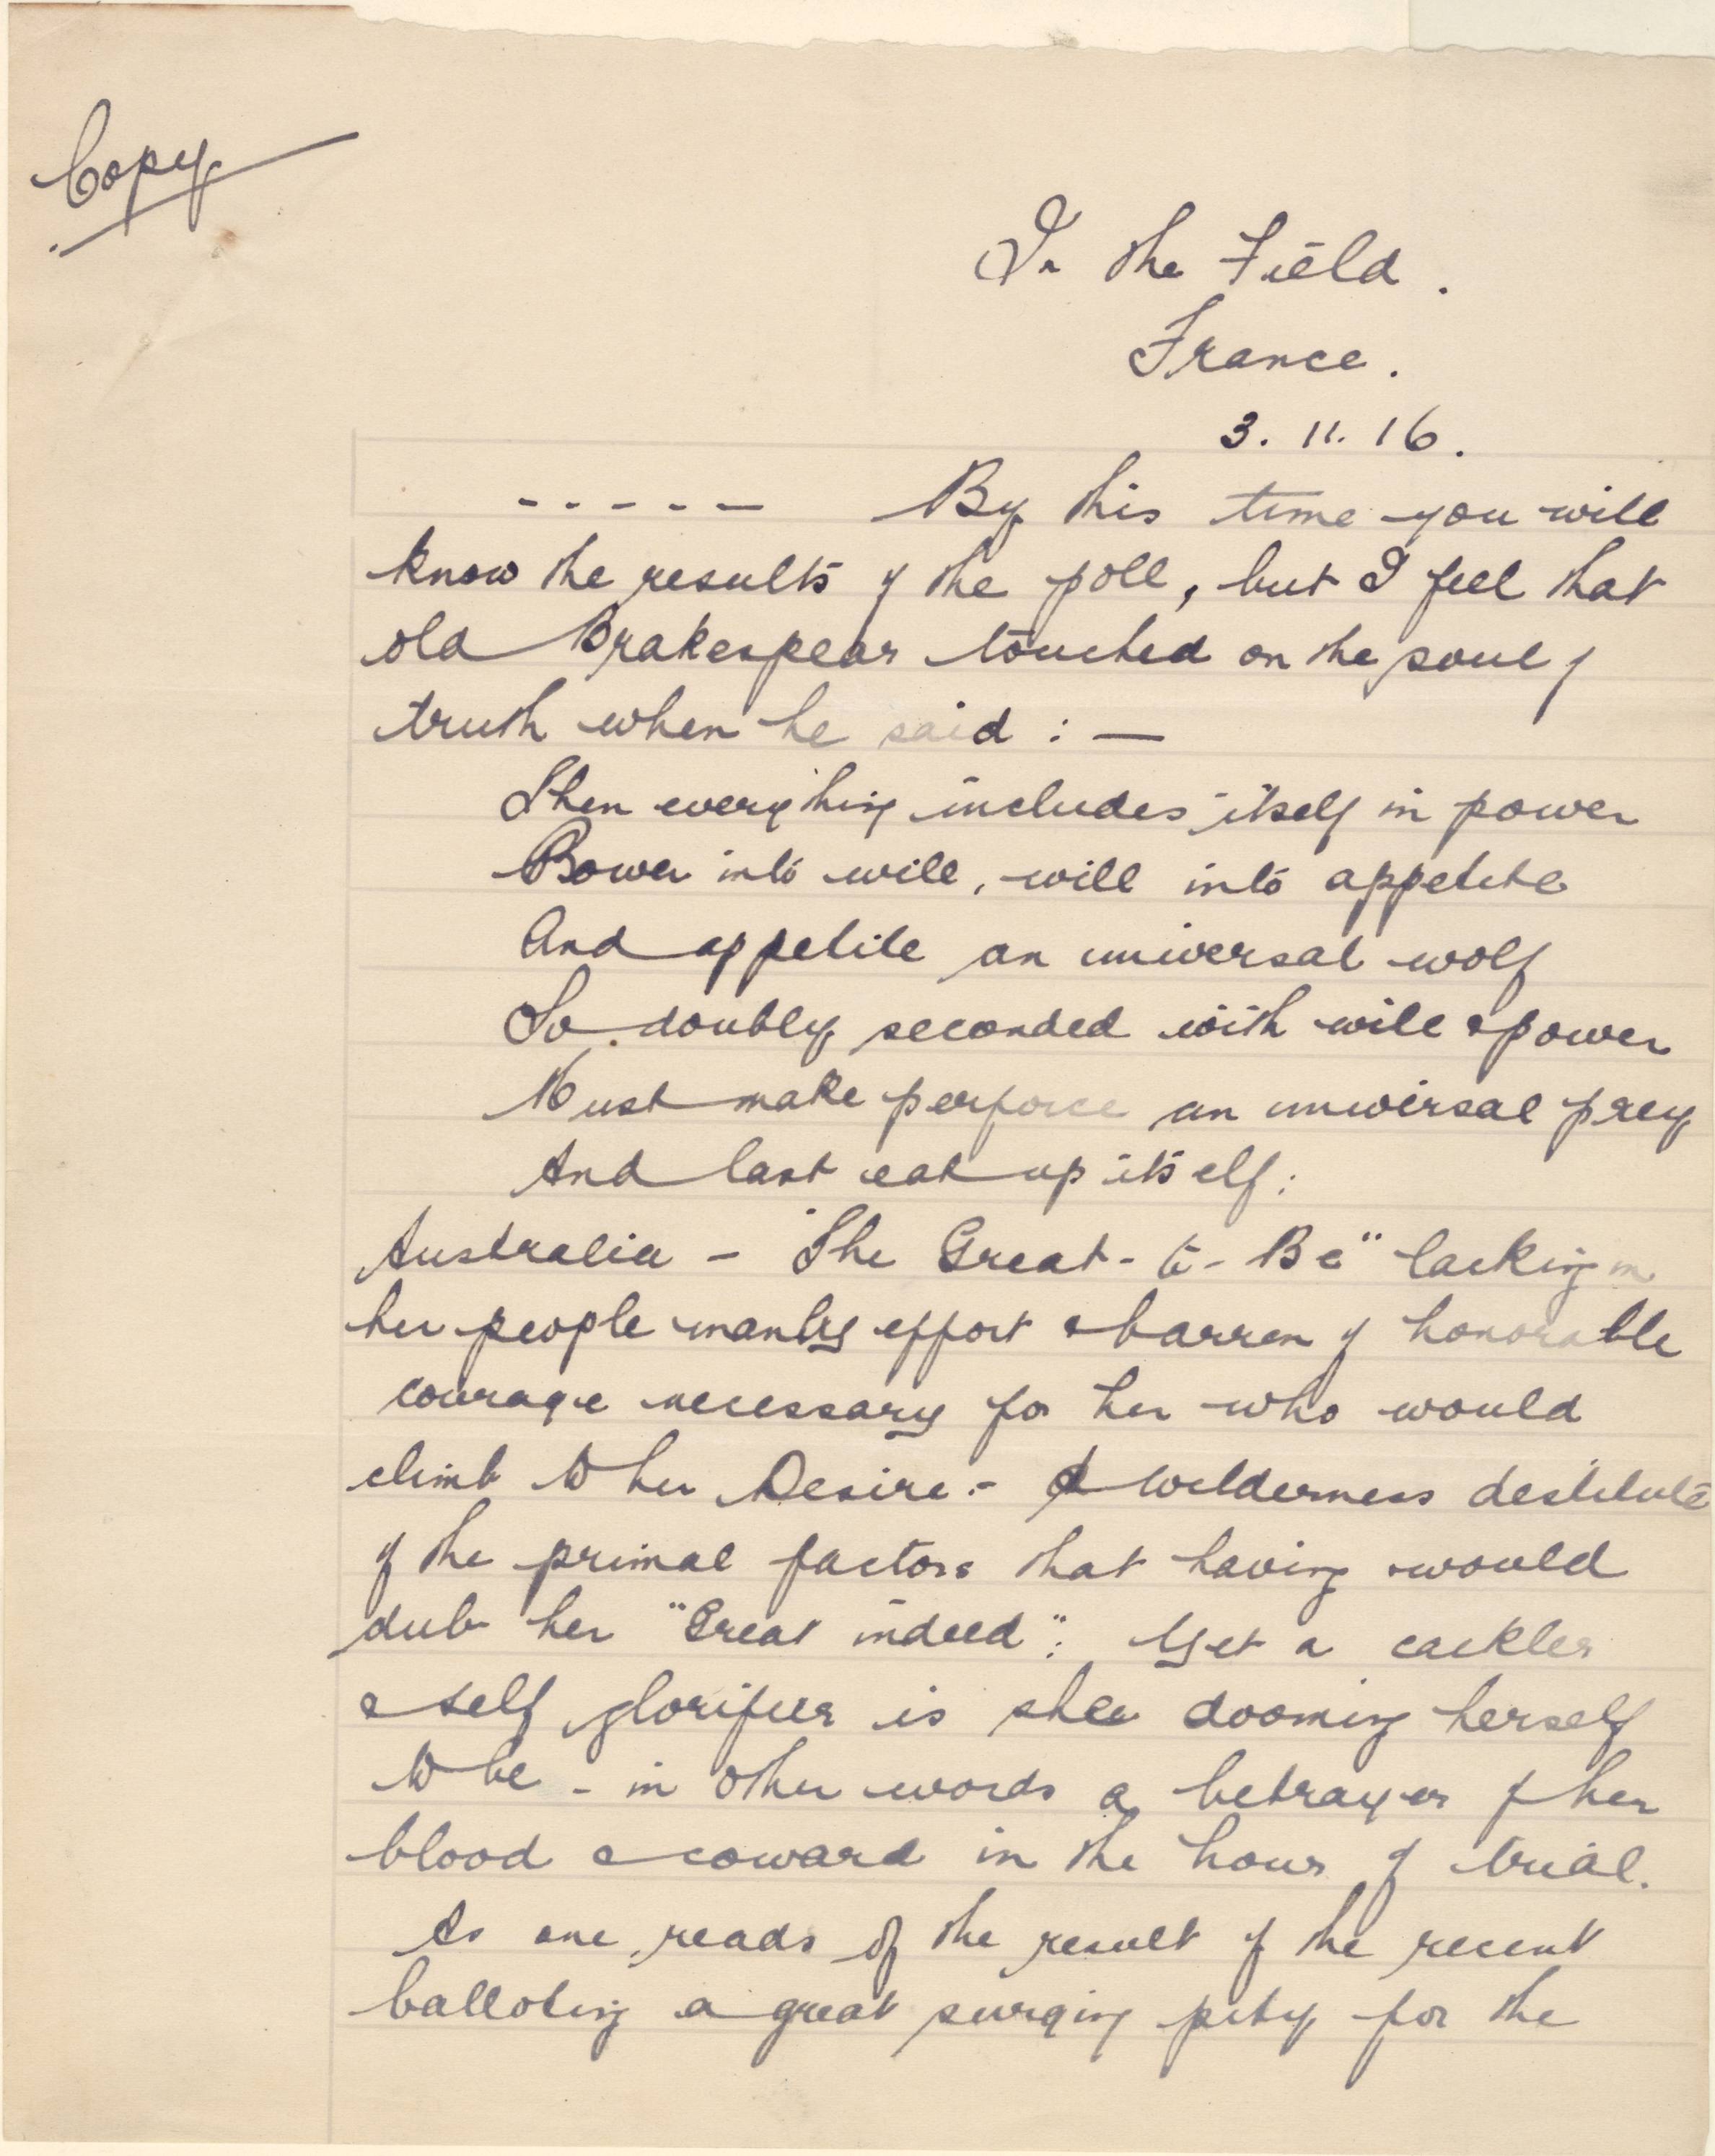 Copy
In the Field.
France.
3. 11. 16.
- - - - - By this time you will
know the results of the poll, but I feel that
old Brakespear touched on the soul of
truth when he said : —
Then everything includes itself in power
Power into will, will into appetite
And appetite an universal wolf
So doubly seconded with will & power
Must make perforce an universal prey
And last eat up itself:
Australia - "The Great-to-Be" lacking in
her people manly effort & barren of honorable
courage necessary for her who would
climb to her Desire:- A wilderness destitute
of the primal factors that having would
dub her "Great indeed": Yet a cackler
& self glorifier is she dooming herself
to be - in other words a betrayer of her
blood & coward in the hour of trial.
As one reads of the result of the recent
balloting a great surging pity for the